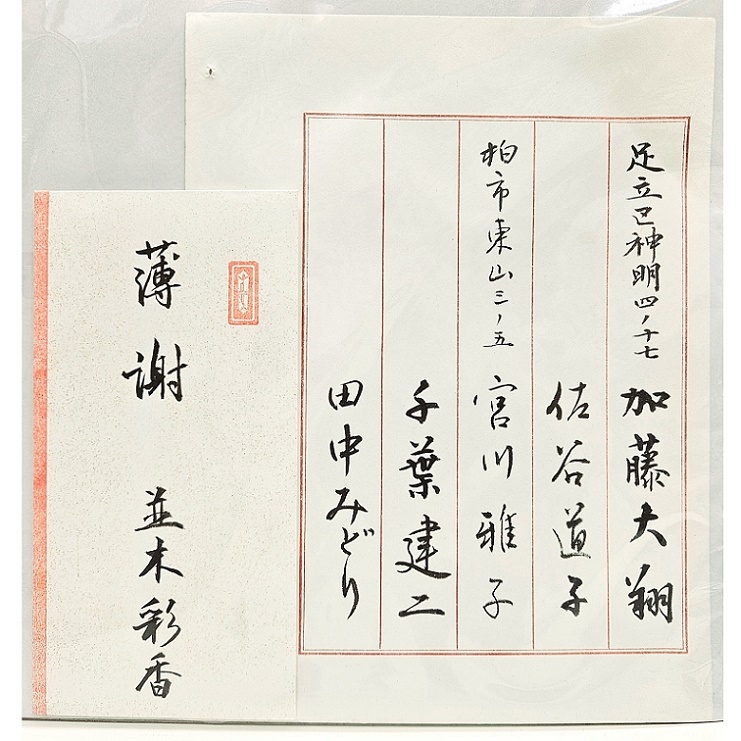 足立区神明四ノ十七 加藤大翔
佐谷道子
柏市東山三ノ五 宮川雅子
千葉建二
田中みどり
薄謝
並木彩香